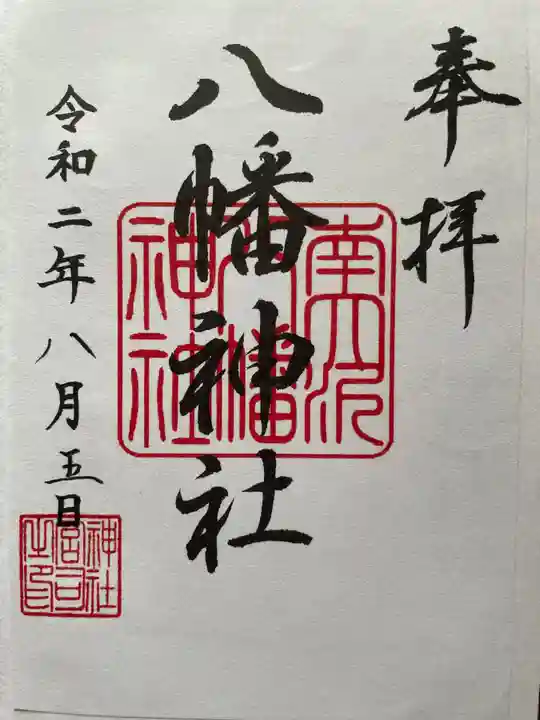 奉拝
八幡神社
令和二年八月五日
八幡
神社
神社
宮司
之印